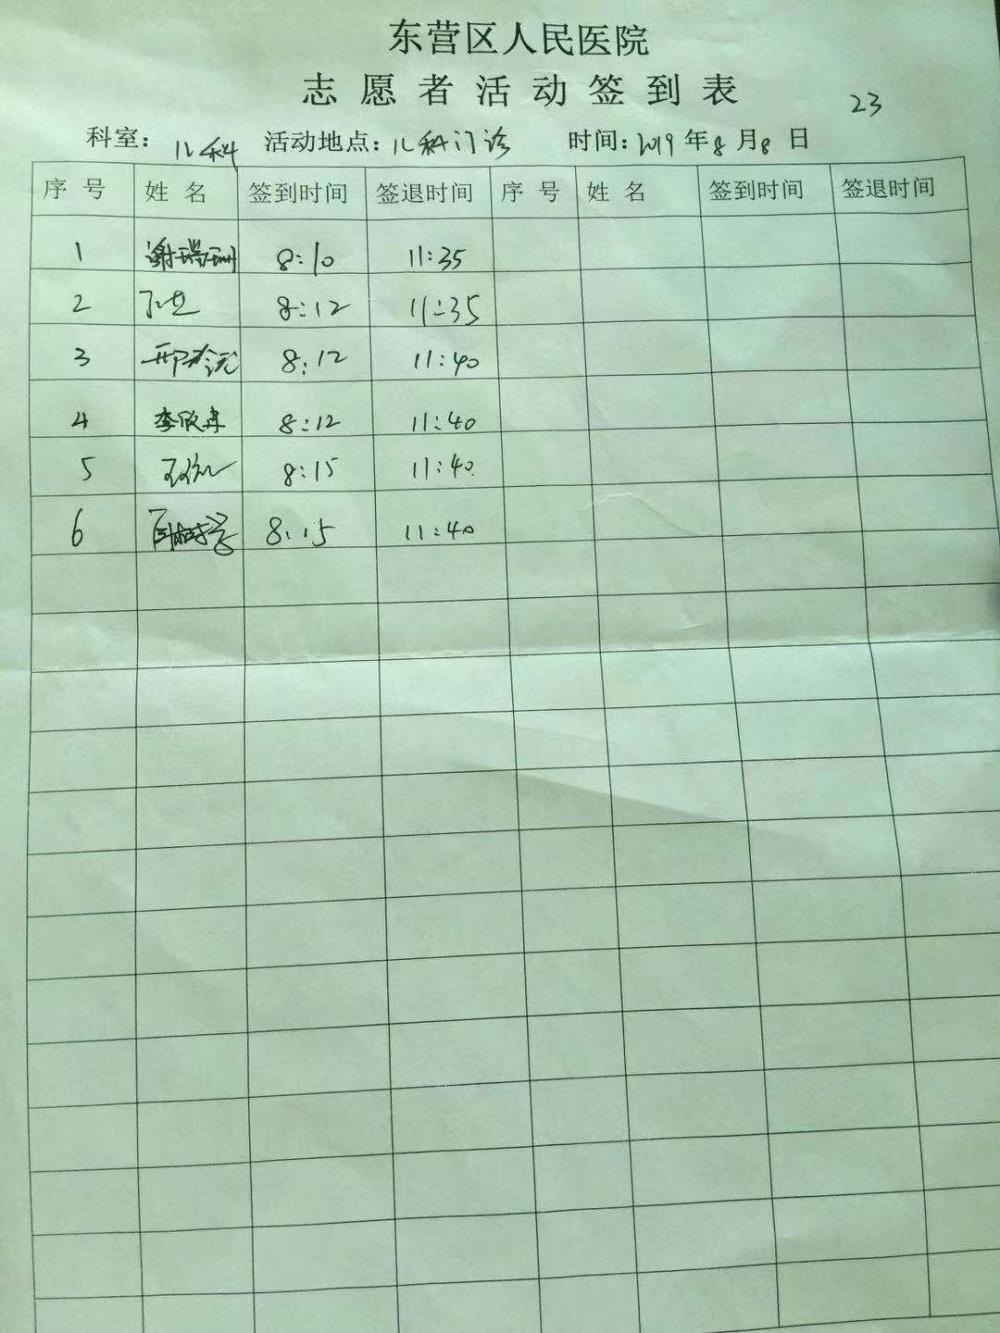 东营区人民医院
志愿者活动签到表
23
科室：儿科 活动地点：儿科门诊 时间：2019年8月8日
序号 姓名 签到时间 签退时间 序号 姓名 签到时间 签退时间
1 谢瑞珊 8:10 11:35
2 8:12 11:35
3 8:12 11:40
4 李欣冉 8:12 11:40
5 8:15 11:40
6 8:15 11:40